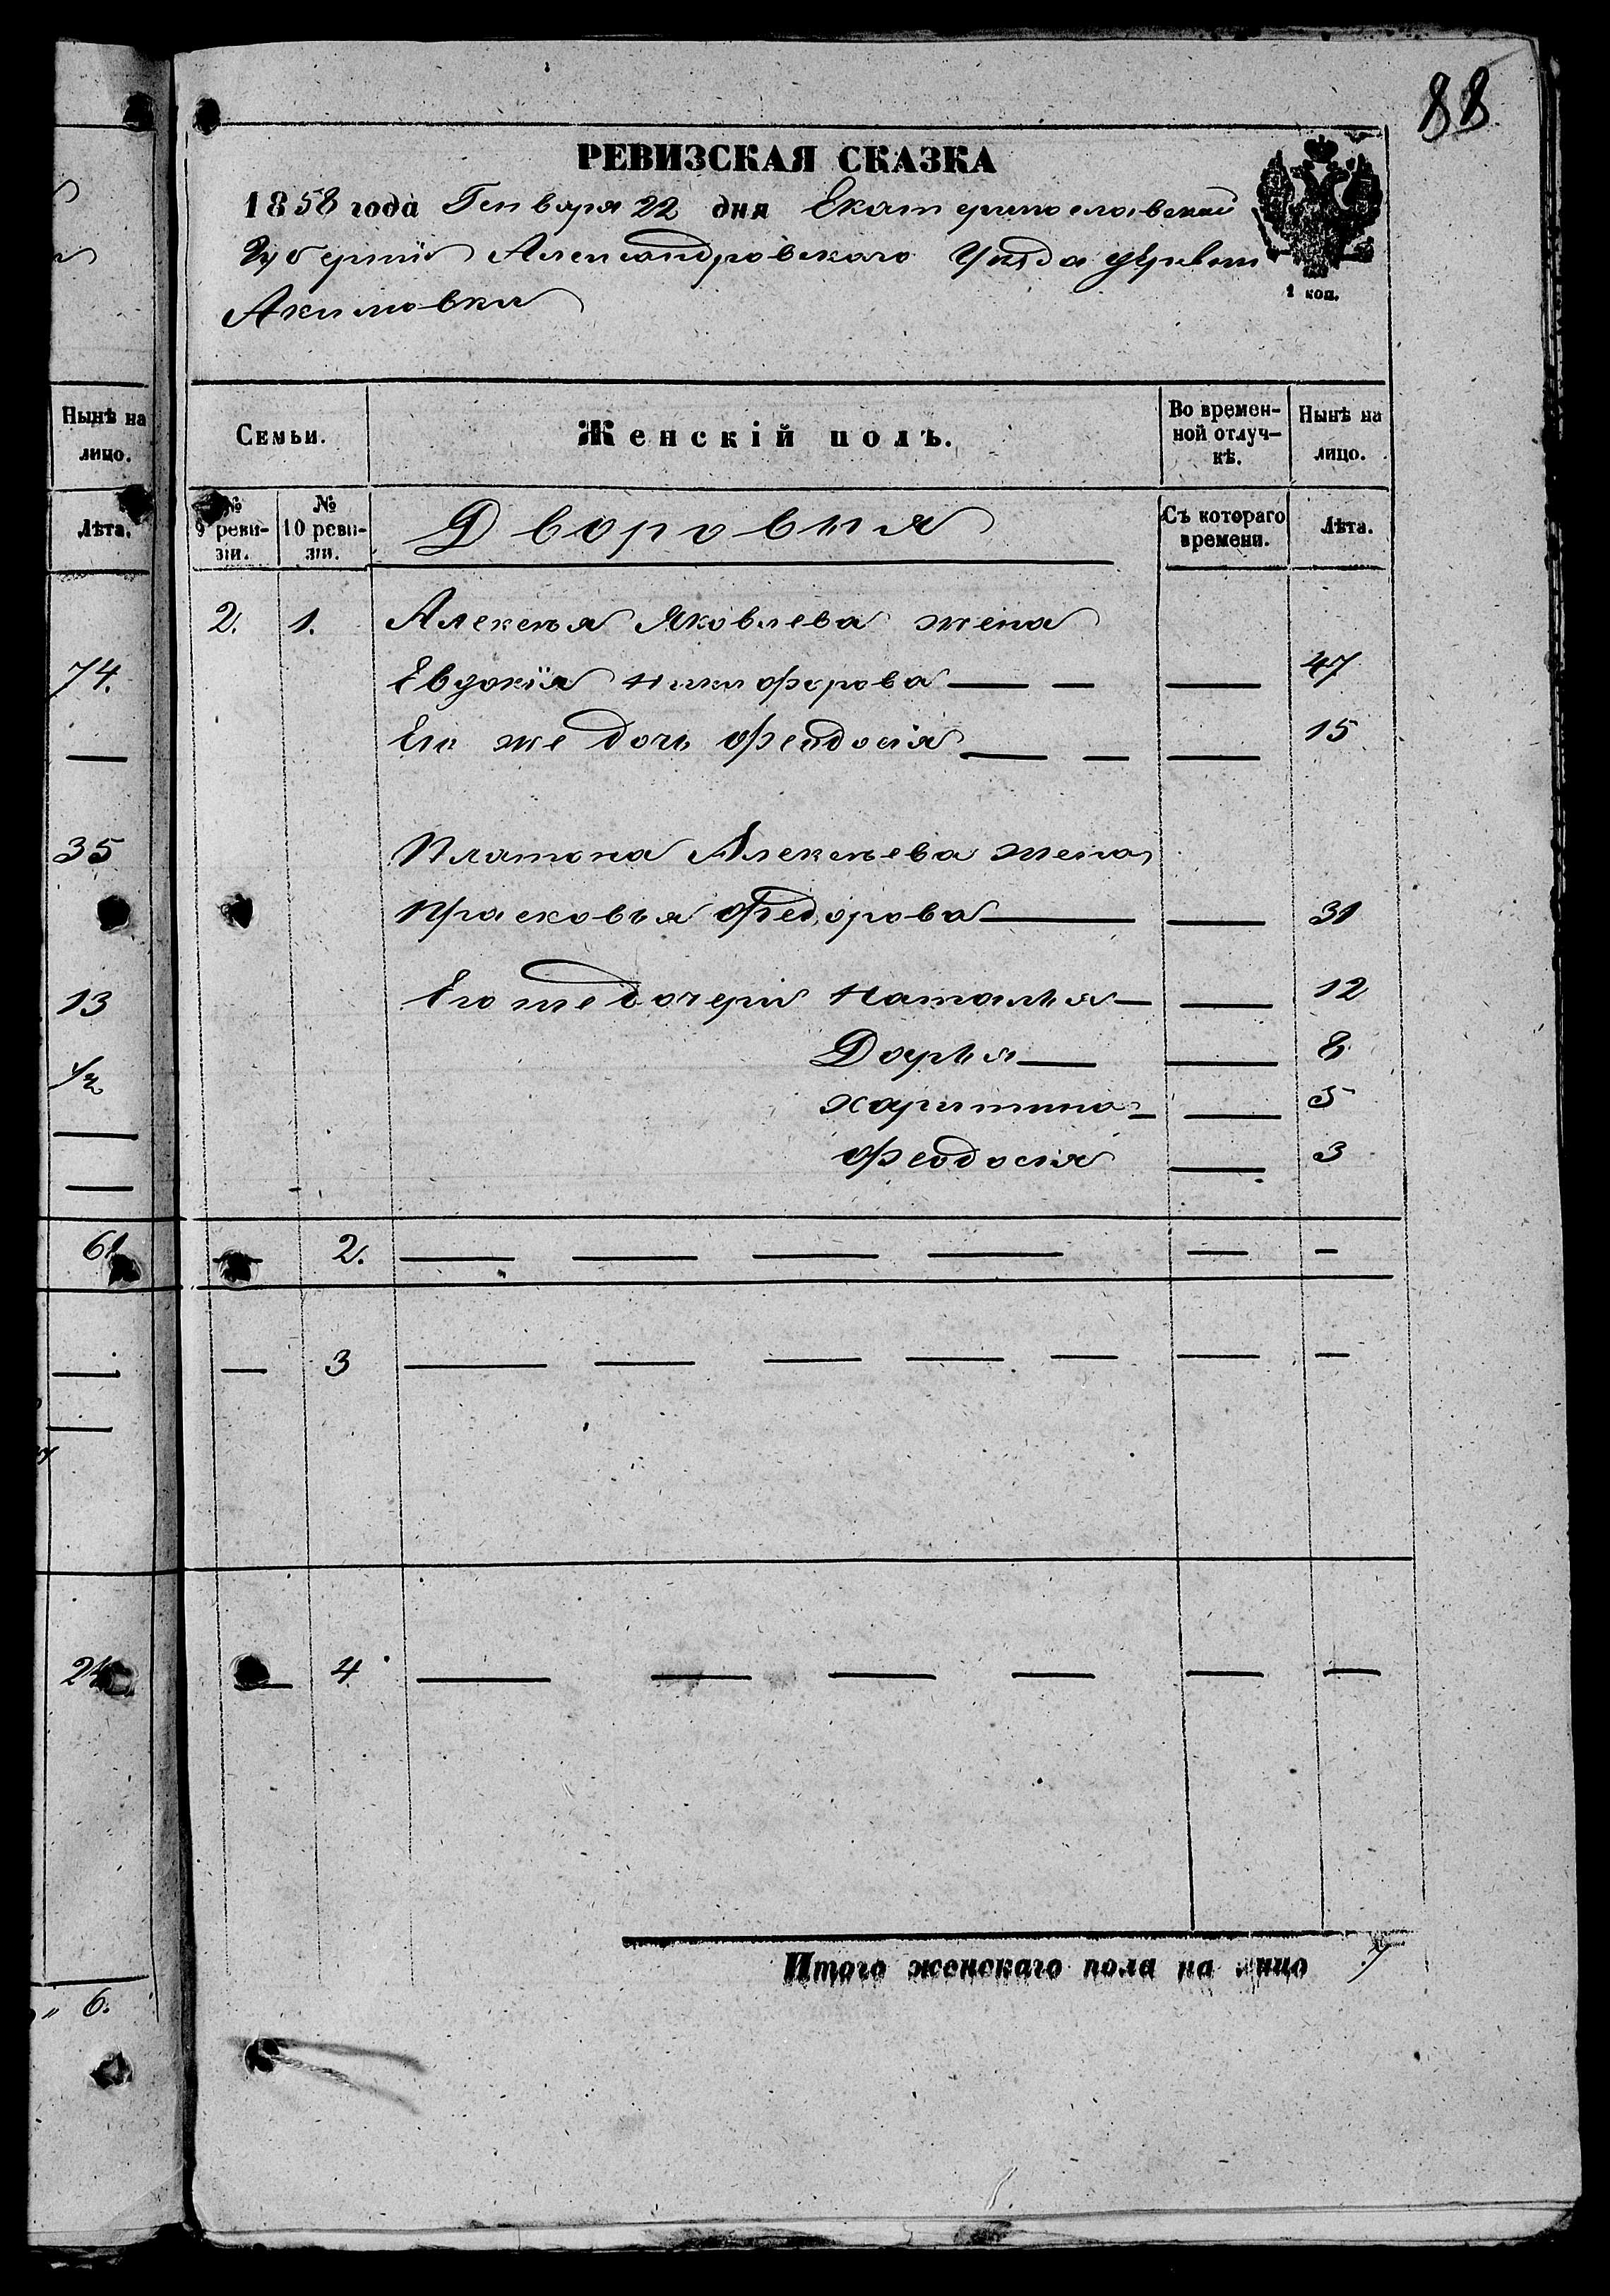 88
РЕВИЗСКАЯ СКАЗКА
1858 года Генваря 22 дня Екатеринославской
Губернии Александровского Уезда деревни
Акимовки
1 коп.
Нынѣ на лицо.
Лѣта.
74.
—
35
13
1/2
—
—
61
—
—
24
6.
Семьи.
Женскій полъ.
Во времен-
ной отлуч-
кѣ.
Нынѣ на
лицо.
№
9 реви-
зіи.
№
10 реви-
зіи.
Дворовыя
Съ котораго
времени.
Лѣта.
2. 1. Алексея Яковлева жена
Евдокія Никифорова — — — 47
Его же дочь Феодосія — — — 15
Платона Алексеева жена
Прасковья Федорова — — 31
Его же дочери Наталья — — 12
Дарья — — 8
Харитина — — 5
Феодосія — 3
— 2. — — — — — —
— 3 — — — — — — —
— 4. — — — — — —
Итого женскаго пола на лицо 7